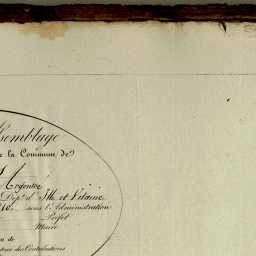 semblage
e la Commune de
Argentré
Dépt. d' Ille et Vilaine
sous l'Administration
Préfet
Maire
on de
des Contributions